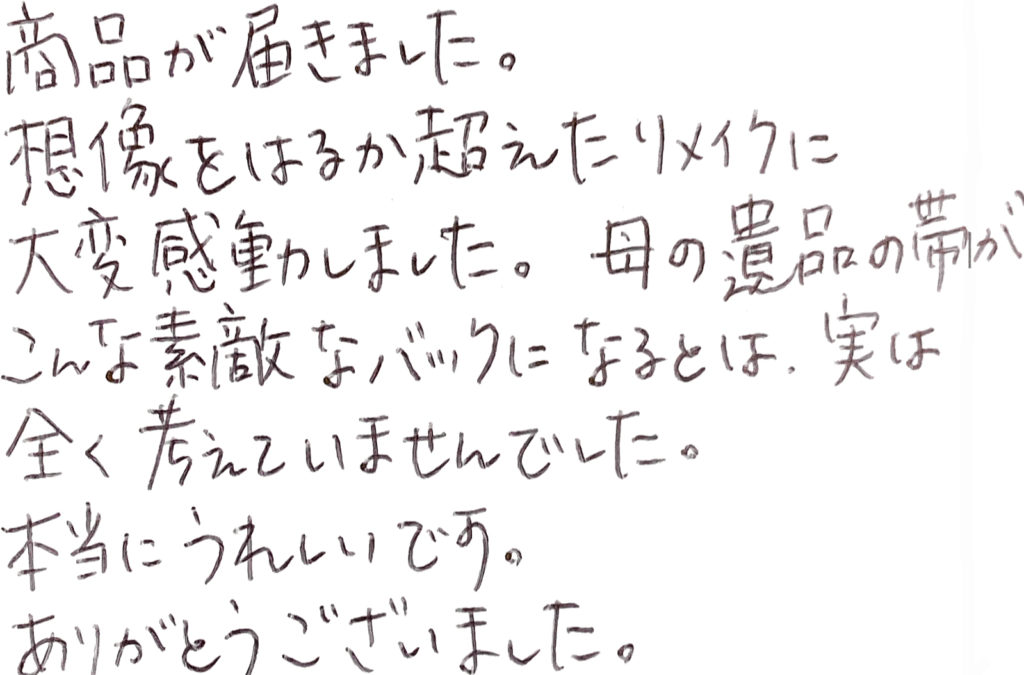 商品が届きました。
想像をはるか超えたリメイクに
大変感動しました。 母の遺品の帯が
こんな素敵なバックになるとは、実は
全く考えていませんでした。
本当にうれしいです。
ありがとうございました。